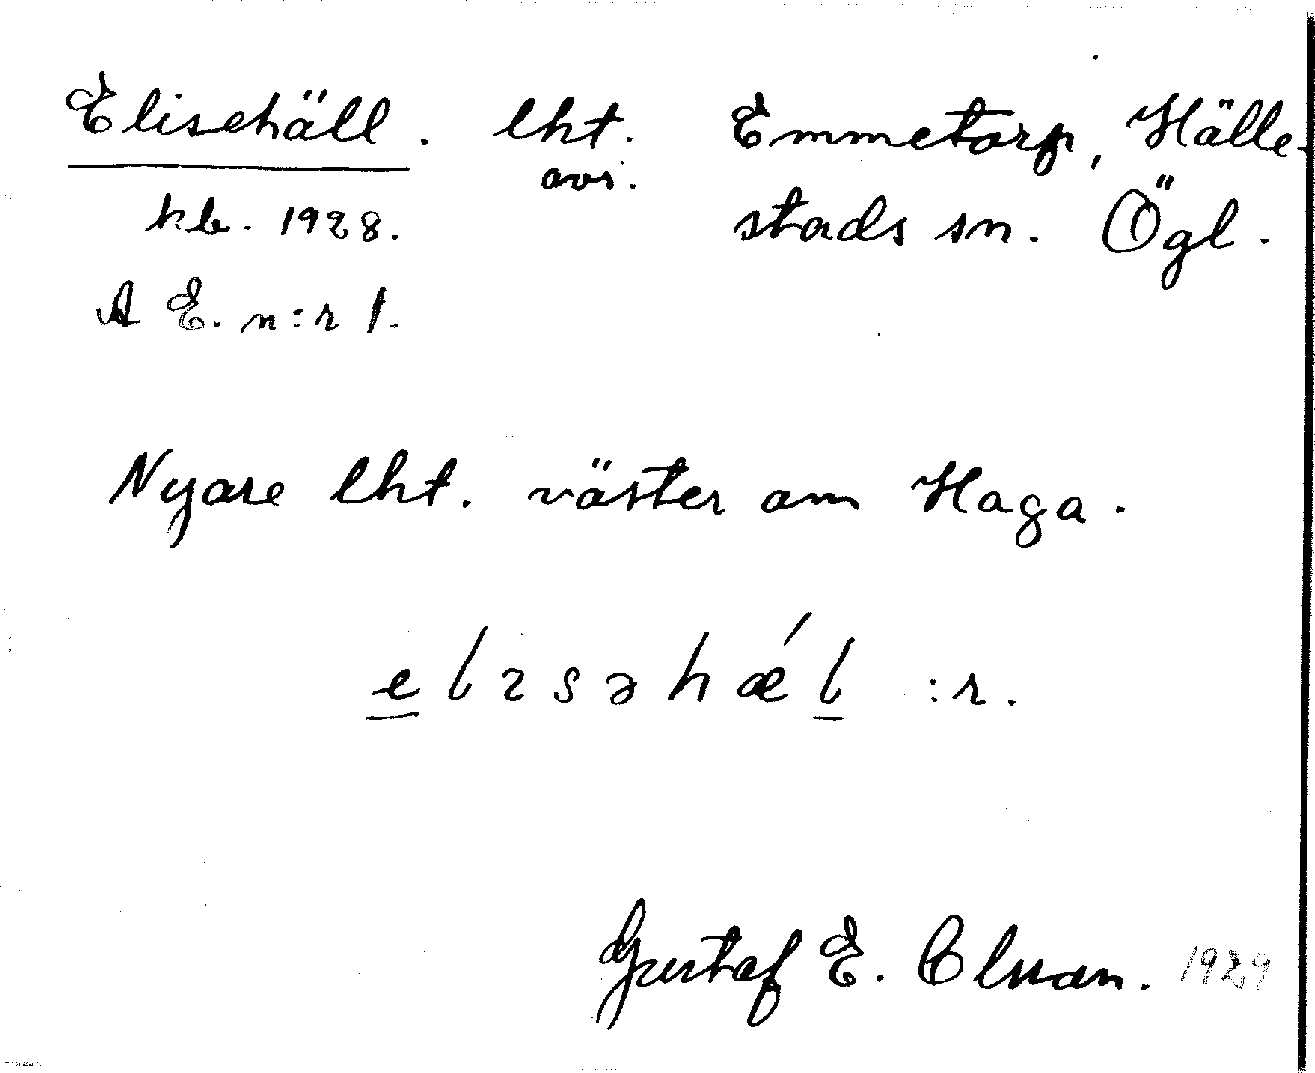 Elisehäll. lht. Emmetorp, Hälle-
avs.
kb. 1928. stads sn. Ögl.
A E. n:r 1.
Nyare lht. väster om Haga.
elɩsəhǽl :r.
Gustaf E. 1929